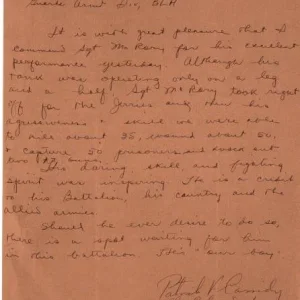 It is with great pleasure that I
commend Sgt McRory for his excellent
performance yesterday. Although his
tank was operating only on a leg
and a half, Sgt McRory took right
off for the Jerries and, thru his
agressiveness & skill we were able
to kill about 35, wound about 50,
& capture 50 prisoners, and knock out
two guns.
His daring, skill, and fighting
spirit was inspiring. He is a credit
to his Battalion, his country, and the
allied armies.
Should he ever desire to do so,
there is a spot waiting for him
in this battalion. He's "our boy."
Patrick F. Cassidy